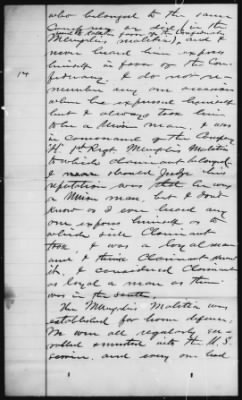 who belonged to the same
Company as I did in the
Memphis Militia, and
never heard him express
himself in favor of the Con-
federacy. I do not re-
14
member any one occasion
when he expressed himself
but I always took him
to be a Union man. I was
in command of the Company
"K" 1st Regt Memphis Militia
to which claimant belonged.
I should judge his
reputation was that he was
a Union man, but I dont
know as I ever heard any
one express himself as to
which side Claimant
took. I was a loyal man
and I think Claimant knew
it. I considered Claimant
as loyal a man as there
was in the south.
The Memphis Militia was
established for home defense.
We were all regularly en-
rolled mustered into the U.S.
service. and every one had